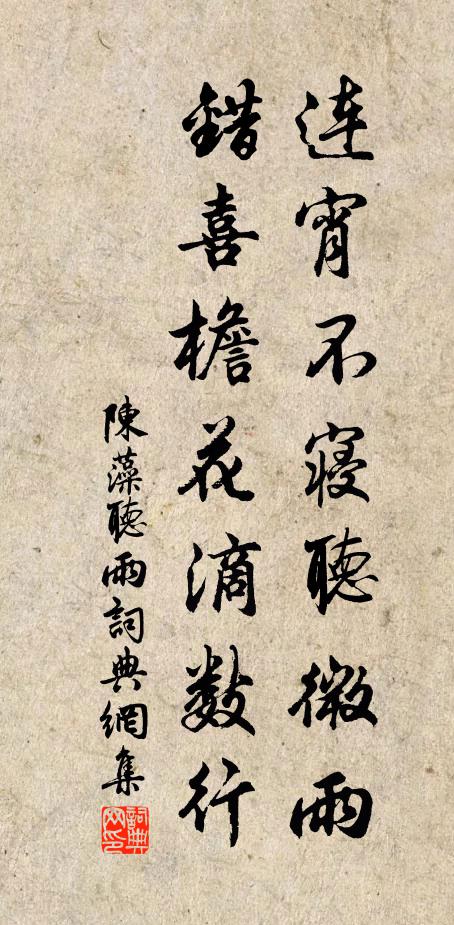 連宵不寢聽微雨
錯喜檐花滴數行
陳藻聽雨詞典網集
詞典網印